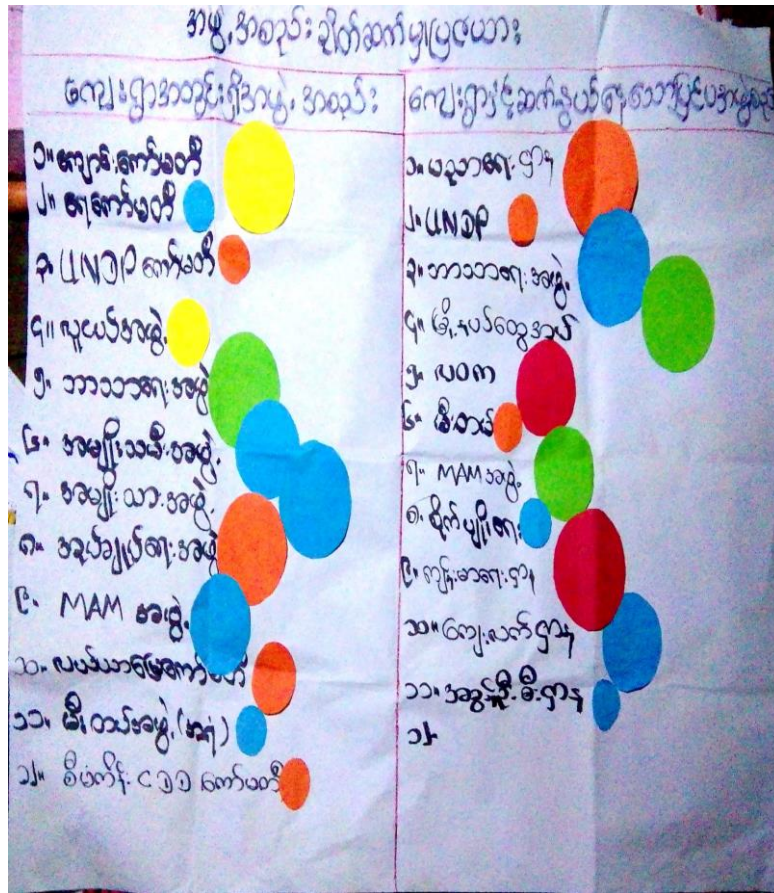 အဖွဲ့အစည်းချိတ်ဆက်မှုပြဇယား
ကျေးရွာအတွင်းရှိအဖွဲ့အစည်း
၁။ ကျောင်းကော်မတီ
၂။ ရေကော်မတီ
၃။ UNDP ကော်မတီ
၄။ လူငယ်အဖွဲ့
၅။ ဘာသာရေးအဖွဲ့
၆။ အမျိုးသမီးအဖွဲ့
၇။ အမျိုးသားအဖွဲ့
၈။ အုပ်ချုပ်ရေးအဖွဲ့
၉။ MAM အဖွဲ့
၁၀။ လယ်ယာမြေကော်မတီ
၁၁။ မီးတပ်အဖွဲ့ (အရံ)
၁၂။ စီမံကိန်း CDD ကော်မတီ
ကျေးရွာနှင့်ဆက်နွယ်နေသောပြင်ပအဖွဲ့အစည်း
၁။ ပညာရေးဌာန
၂။ UNDP
၃။ ဘာသာရေးအဖွဲ့
၄။ မြို့နယ်ထွေအုပ်
၅။ လဝက
၆။ မီးတပ်
၇။ MAM အဖွဲ့
၈။ စိုက်ပျိုးရေး
၉။ ကျန်းမာရေးဌာန
၁၀။ ကျေးလက်ဌာန
၁၁။ အခွန်ဦးစီးဌာန
၁၂။